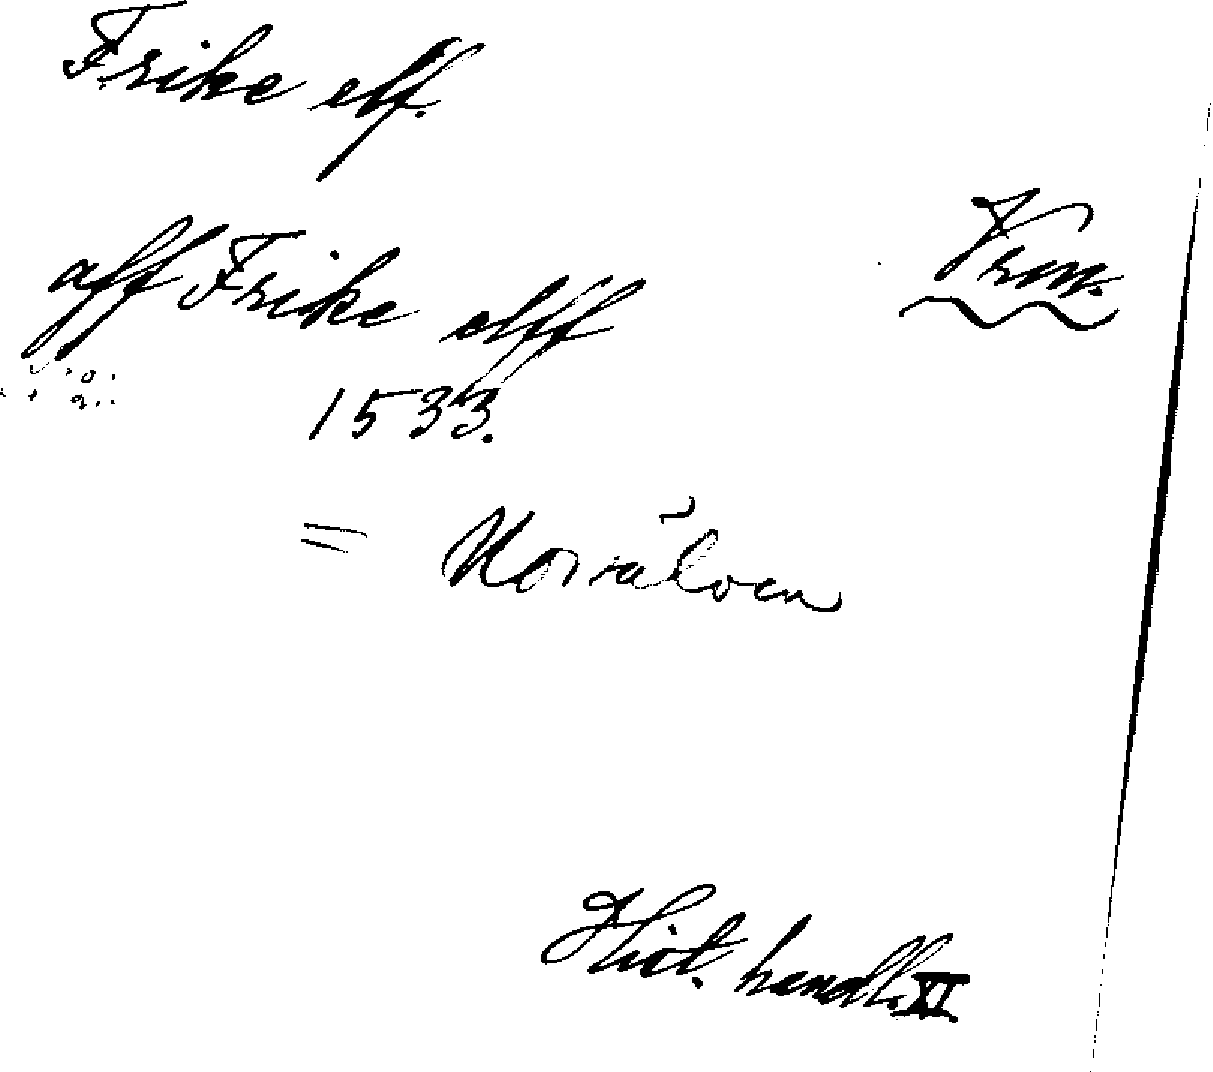 Frike elf.
Vrm.
aff Frike elff
1533.
= Norsälven
Hist. handl. XI.